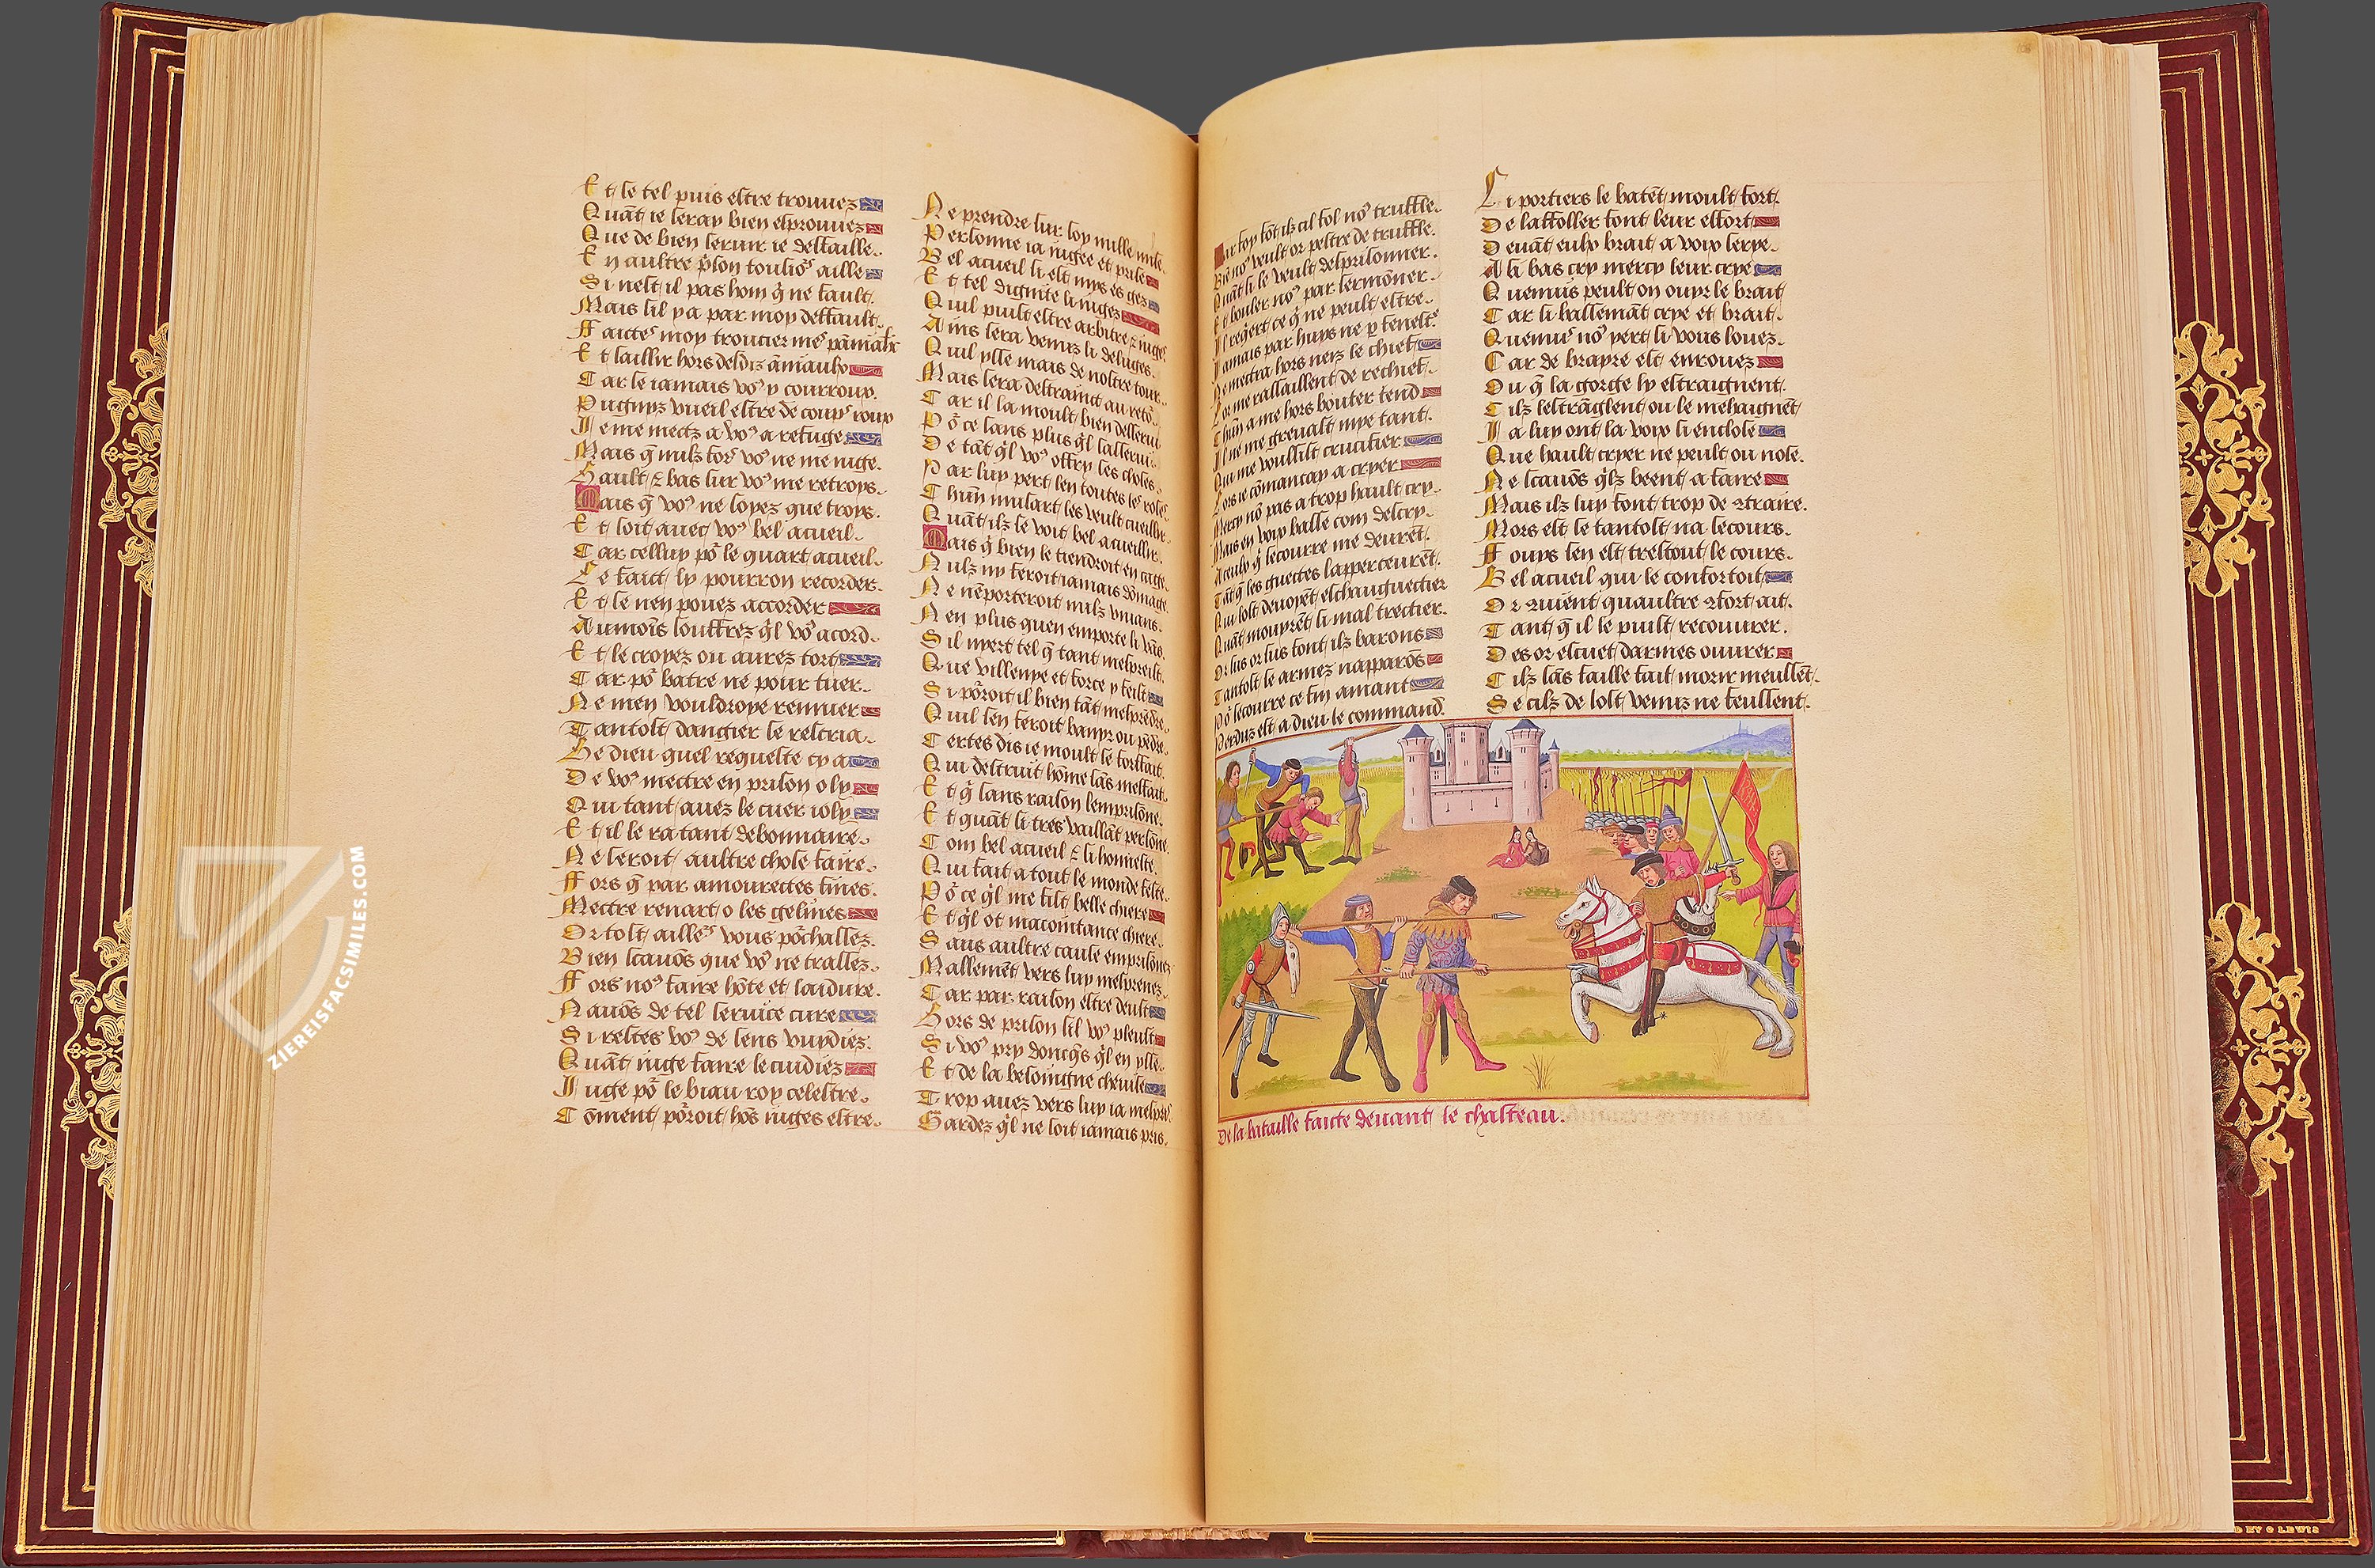 Et se tel puis estre trouuez
Quāt ie seray bien esprouuez
Que de bien seruir ie deffaille
En aultre p̄son touſio9 aille
Si nest il pas hom q̄ ne fault
Mais sil y a par moy deffault
Faictes moy trousser mes
Et saillir hors
Car se iamais vo9 y courroux
Pugnys vueil estre de coups roux
Ie me mectz a vo9 a refuge
Mais q̄ nulz fors vo9 ne me iuge
Hault & bas sur vo9 me retroys
Mais q̄ vo9 ne soyez que troys
Et soit auec vo9 bel acueil
Car celluy po᷑ le quart acueil
Le faict sy pourron recorder
Et se nen pouez accorder
Aumoīs souffrez q̄l vo9 acord
Et se croyez ou aurez tort
Car po᷑ batre ne pour tuer
Ne men vouldroye remuer
Tantost dangier se rescria
He dieu quel requeste cy a
De vo9 mectre en prison o ly
Qui tant auez le cuer ioly
Et il le ra tant debonnaire
Ne seroit aultre chose faire
Fors q̄ par amourectes fines
Mectre renart o les gelines
Or tost ailleurs vous po᷑challez
Bien scauōs que vo9 ne trallez
Fors no9 faire hōte et laidure
Nauōs de tel seruice cure
Si restes vo9 de sens vuydiez
Quāt iuge faire le cuidiez
Iuge po᷑ le biau roy celestre
Cōment po᷑roit hōs iuges estre
Ne prendre sur soy nulle mise
Personne ia iugee et prise
Bel acueil si est mys es gez
Et tel dignite li iugez
Quil puist estre arbitre & iuges
Ains sera venuz li deluges
Quil ysse mais de nostre tour
Mais sera destrainct au reto᷑
Car il la moult bien desserui
Po᷑ ce sans plus q̄l sasserui
De tāt q̄l vo9 offry les choses
Par luy pert len toutes les roses
Chūn musart les veult cueillir
Quāt ilz se voit bel acueillir
Mais q̄ bien le tiendroit en cage
Nulz ny feroit iamais dōmage
Ne nēporteroit nulz viuans
Nen plus quen emporte li vās
Sil nyert tel q̄ tant mespreist
Que villenye et force y feist
Si po᷑roit il bien tāt mesprēdre
Quil sen feroit banyr ou pēdre
Certes dis ie moult se forffait
Qui destruit hōme sās meffait
Et q̄ sans raison lemprisōne
Et quāt si tres vaillāt persōne
Com bel acueil & si honneste
Qui fait a tout le monde feste
Po᷑ ce q̄l me fist belle chiere
Et q̄l ot macointance chiere
Sans aultre cause emprisonez
Mallemēt vers luy mesprenez
Car par raison estre deust
Hors de prison sil vo9 pleust
Si vo9 pry doncq̄s q̄l en ysse
Et de la besoingne cheuisse
Trop auez vers luy ia mespris
Gardez q̄l ne soit iamais pris
Par foy fōt ilz cil fol no9 truffle
Biē no9 veult or pestre de truffle
Quāt si le veult desprisonner
Et bouler no9 par sermōner
Il reqert ce q̄ ne peult estre
Iamais par huys ne p fenestre
Ne mectra hors neiz le chief
Lors me rassaillent de rechief
Chūn a me hors bouter tend
Il ne me greuast mye tant
Qui me voulsist crucifier
Lors ie cōmancay a cryer
Mercy no9 pas a trop hault cry
Mais en voix basse com descry
A ceulx q̄ secourre me deurēt
Tāt q̄ les guectes lapperceurēt
Qui lost deuoyēt eschauguectier
Quāt mouyrēt si mal trectier
Or sus or sus font ilz barons
Tantost se armez napparōs
Po᷑ secourre ce fin amant
Perduz est a dieu le command
Li portiers le batēt moult fort
De laffoller font leur effort
Deuāt eulx brait a voix serpe
A si bas cry mercy leur crye
Quemiis peult on ouyr le brait
Car si bassemāt crye et brait
Quemiis no9 pert si vous louez
Car de brayre est enrouez
Ou q̄ la gorge ly estraignent
Cilz lestrāglent ou le mehaignēt
Ia luy ont la voix si enclose
Que hault cryer ne peult ou nose
Ne scauōs q̄lz beent a faire
Mais ilz luy font trop de ꝯtraire
Mors est se tantost na secours
Fouys sen est trestout le cours
Bel acueil qui le confortoit
Or ꝯuient quaultre ꝯfort ait
Tant q̄ il se puist recouurer
Des or estuet darmes ouurer
Cilz sās faille fait morir meussēt
Se cilz de lost venuz ne feussent
De la bataille faicte deuant le chasteau.
ZIEREISFACSIMILES.COM